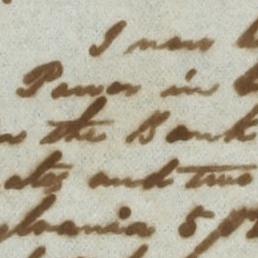 I now
Power in
the Bank
ates and two
lvania 5 p